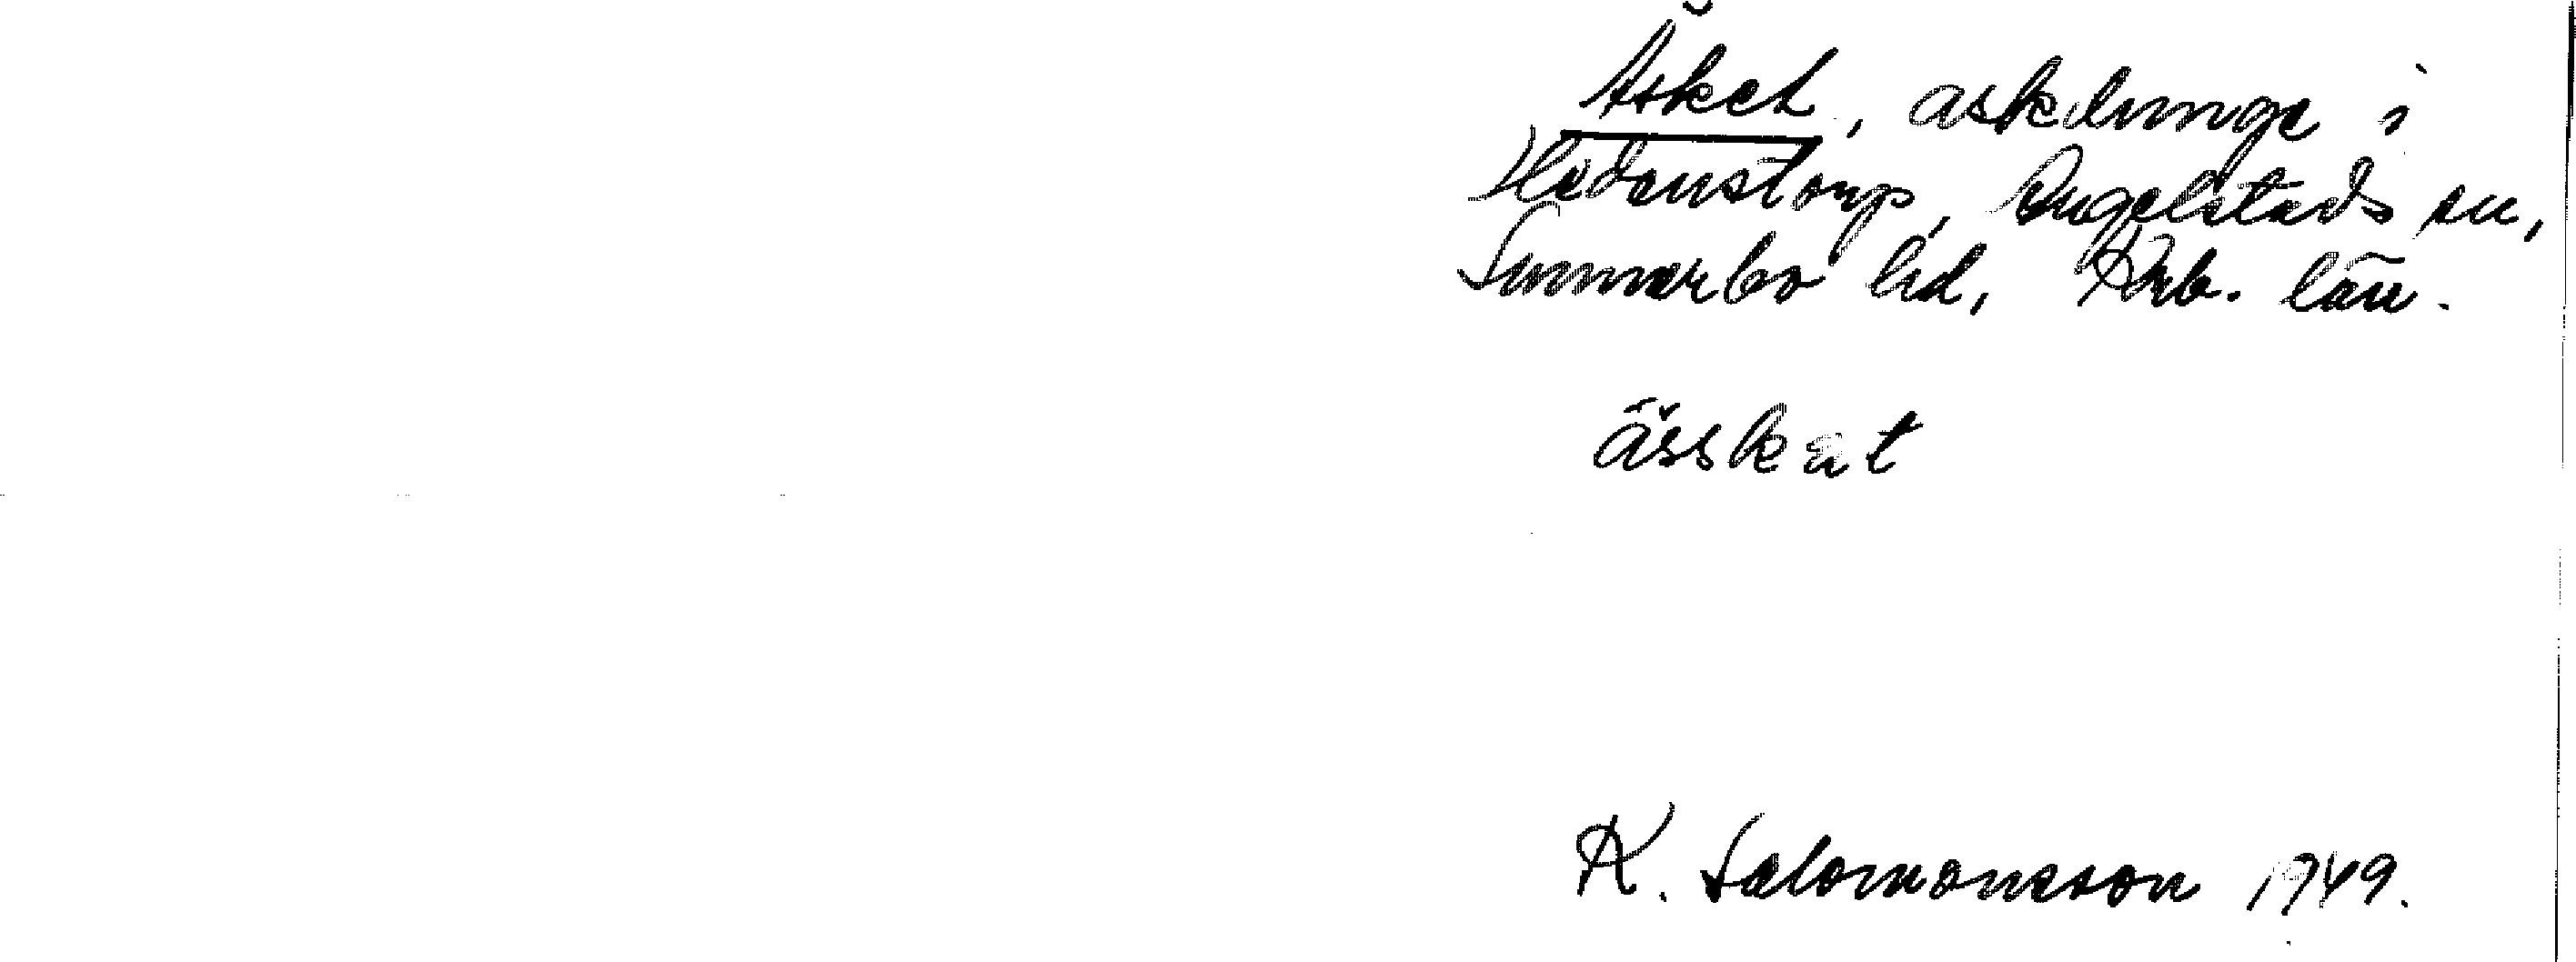 Äsket, askdunge i
Hedenstorp, Angelstads sn,
Sunnerbo hd, Krb. län.
ässkat
K. Salomonsson 1949.